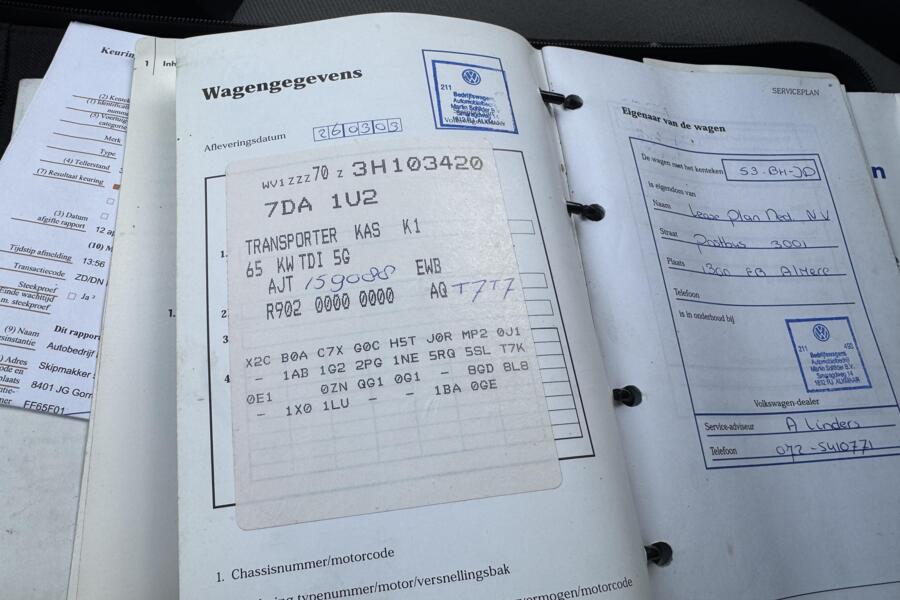 Keurin
(2) Kentek
(1) Identifica
numme
(5) Voertuig
categorie
Merk
Type
(4) Tellerstand
(7) Resultaat keuring
(3) Datum
afgifte rapport
12 ap
(10) M
Tijdstip afmelding 13:56
Transactiecode ZD/DN
Steekproef
Ja
Einde wachttijd
m. steekproef
(9) Naam
Dit rappor
Autobedrijf
Adres
Skipmakker
8401 JG Gorr
FF65F01
1 Inh
1.
Wagengegevens
211
Afleveringsdatum 260303
WV1ZZZ70 Z 3H103420
7DA 1U2
TRANSPORTER KAS K1
65 KW TDI 5G
AJT 159088 EWB
R902 0000 0000 AQ T7T7
X2C B0A C7X G0C H5T J0R MP2 0J1
- 1AB 1G2 2PG 1NE 5RQ 5SL T7K
0E1 0ZN QG1 0G1 - 8GD 8L8
- 1X0 1LU - - 1BA 0GE
1.
2
3
4
1. Chassisnummer/motorcode
typenummer/motor/versnellingsbak
vermogen/motorcode
SERVICEPLAN
Eigenaar van de wagen
De wagen met het kenteken 53-BH-JD
is eigendom van
Naam Lease Plan Ned. N.V
Straat Postbus 3001
Plaats 1300 EB Almere
Telefoon
is in onderhoud bij
211 450
Bedrijfswagens
Automobielbedrijf
Martin Schilder B.V.
Smaragdweg 14
1812 RJ ALKMAAR
Volkswagen-dealer
Service-adviseur A Linders
Telefoon 072-5410771
n